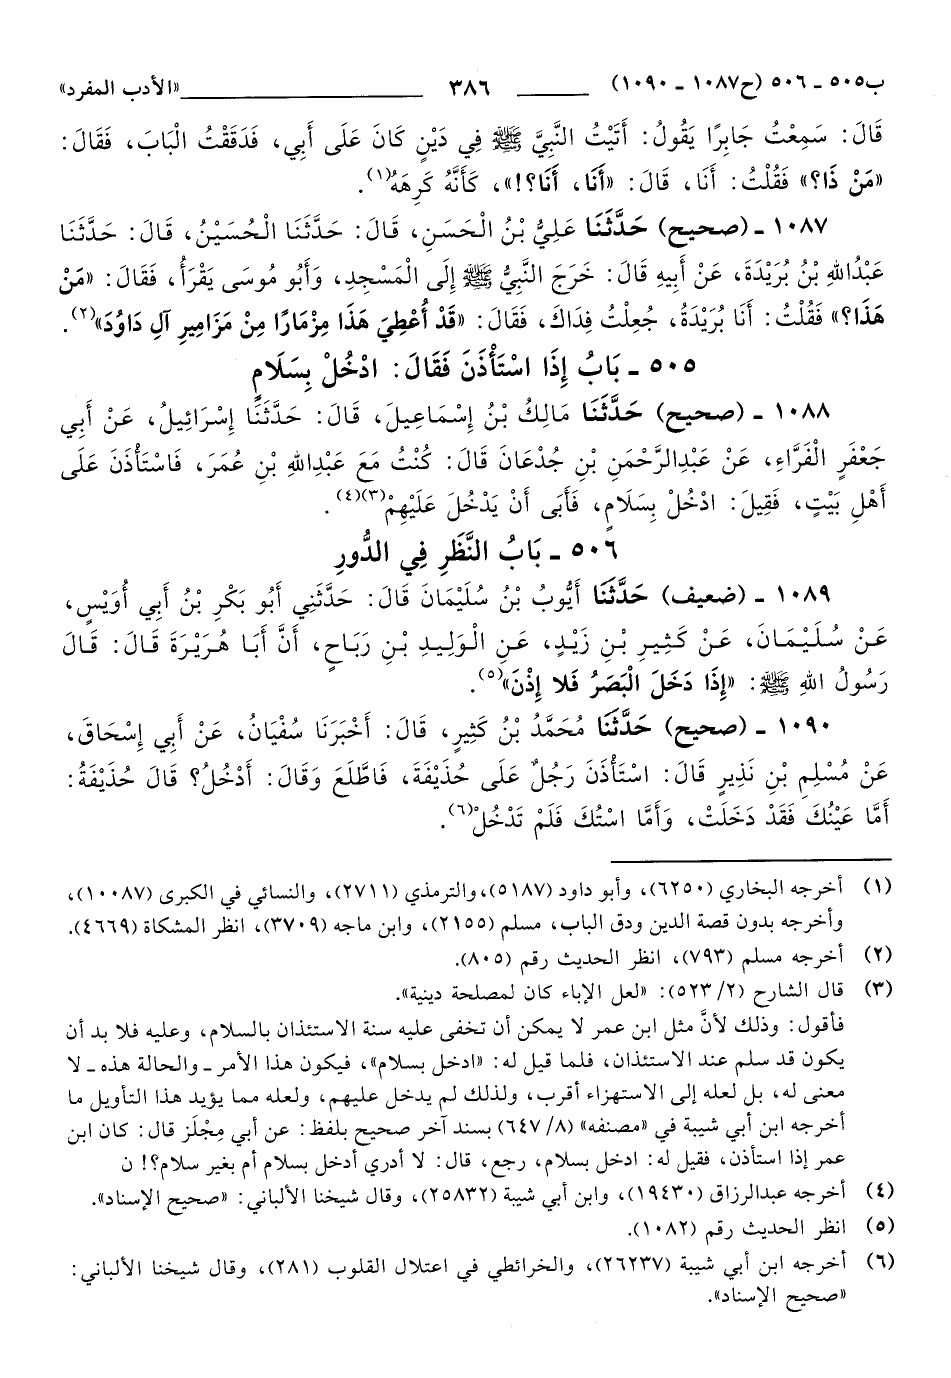 ب٥٠٥ ـ ٥٠٦ (ح١٠٨٧ ـ ١٠٩٠) ٣٨٦ «الأدب المفرد»
قَالَ: سَمِعْتُ جَابِرًا يَقُولُ: أَتَيْتُ النَّبِيَّ ﷺ فِي دَيْنٍ كَانَ عَلَى أَبِي، فَدَقَقْتُ الْبَابَ، فَقَالَ:
«مَنْ ذَا؟» فَقُلْتُ: أَنَا، قَالَ: «أَنَا، أَنَا؟!»، كَأَنَّهُ كَرِهَهُ(١).
١٠٨٧ ـ (صحيح) حَدَّثَنَا عَلِيُّ بْنُ الْحَسَنِ، قَالَ: حَدَّثَنَا الْحُسَيْنُ، قَالَ: حَدَّثَنَا
عَبْدُاللهِ بْنُ بُرَيْدَةَ، عَنْ أَبِيهِ قَالَ: خَرَجَ النَّبِيُّ ﷺ إِلَى الْمَسْجِدِ، وَأَبُو مُوسَى يَقْرَأُ، فَقَالَ: «مَنْ
هَذَا؟» فَقُلْتُ: أَنَا بُرَيْدَةُ، جُعِلْتُ فِدَاكَ، فَقَالَ: «قَدْ أُعْطِيَ هَذَا مِزْمَارًا مِنْ مَزَامِيرِ آلِ دَاوُدَ»(٢).
٥٠٥ ـ بَابُ إِذَا اسْتَأْذَنَ فَقَالَ: ادْخُلْ بِسَلَامٍ
١٠٨٨ ـ (صحيح) حَدَّثَنَا مَالِكُ بْنُ إِسْمَاعِيلَ، قَالَ: حَدَّثَنَا إِسْرَائِيلُ، عَنْ أَبِي
جَعْفَرٍ الْفَرَّاءِ، عَنْ عَبْدِالرَّحْمَنِ بْنِ جُدْعَانَ قَالَ: كُنْتُ مَعَ عَبْدِاللهِ بْنِ عُمَرَ، فَاسْتَأْذَنَ عَلَى
أَهْلِ بَيْتٍ، فَقِيلَ: ادْخُلْ بِسَلَامٍ، فَأَبَى أَنْ يَدْخُلَ عَلَيْهِمْ(٣)(٤).
٥٠٦ ـ بَابُ النَّظَرِ فِي الدُّورِ
١٠٨٩ ـ (ضعيف) حَدَّثَنَا أَيُّوبُ بْنُ سُلَيْمَانَ قَالَ: حَدَّثَنِي أَبُو بَكْرِ بْنُ أَبِي أُوَيْسٍ،
عَنْ سُلَيْمَانَ، عَنْ كَثِيرِ بْنِ زَيْدٍ، عَنِ الْوَلِيدِ بْنِ رَبَاحٍ، أَنَّ أَبَا هُرَيْرَةَ قَالَ: قَالَ
رَسُولُ اللهِ ﷺ: «إِذَا دَخَلَ الْبَصَرُ فَلا إِذْنَ»(٥).
١٠٩٠ ـ (صحيح) حَدَّثَنَا مُحَمَّدُ بْنُ كَثِيرٍ، قَالَ: أَخْبَرَنَا سُفْيَانُ، عَنْ أَبِي إِسْحَاقَ،
عَنْ مُسْلِمِ بْنِ نَذِيرٍ قَالَ: اسْتَأْذَنَ رَجُلٌ عَلَى حُذَيْفَةَ، فَاطَّلَعَ وَقَالَ: أَدْخُلُ؟ قَالَ حُذَيْفَةُ:
أَمَّا عَيْنُكَ فَقَدْ دَخَلَتْ، وَأَمَّا اسْتُكَ فَلَمْ تَدْخُلْ(٦).
(١) أخرجه البخاري (٦٢٥٠)، وأبو داود (٥١٨٧)، والترمذي (٢٧١١)، والنسائي في الكبرى (١٠٠٨٧)،
وأخرجه بدون قصة الدين ودق الباب، مسلم (٢١٥٥)، وابن ماجه (٣٧٠٩)، انظر المشكاة (٤٦٦٩).
(٢) أخرجه مسلم (٧٩٣)، انظر الحديث رقم (٨٠٥).
(٣) قال الشارح (٢/ ٥٢٣): «لعل الإباء كان لمصلحة دينية».
فأقول: وذلك لأنَّ مثل ابن عمر لا يمكن أن تخفى عليه سنة الاستئذان بالسلام، وعليه فلا بد أن
يكون قد سلم عند الاستئذان، فلما قيل له: «ادخل بسلام»، فيكون هذا الأمر ـ والحالة هذه ـ لا
معنى له، بل لعله إلى الاستهزاء أقرب، ولذلك لم يدخل عليهم، ولعله مما يؤيد هذا التأويل ما
أخرجه ابن أبي شيبة في «مصنفه» (٨/ ٦٤٧) بسند آخر صحيح بلفظ: عن أبي مِجْلَز قال: كان ابن
عمر إذا استأذن، فقيل له: ادخل بسلام، رجع، قال: لا أدري أدخل بسلام أم بغير سلام؟! ن
(٤) أخرجه عبدالرزاق (١٩٤٣٠)، وابن أبي شيبة (٢٥٨٣٢)، وقال شيخنا الألباني: «صحيح الإسناد».
(٥) انظر الحديث رقم (١٠٨٢).
(٦) أخرجه ابن أبي شيبة (٢٦٢٣٧)، والخرائطي في اعتلال القلوب (٢٨١)، وقال شيخنا الألباني:
«صحيح الإسناد».